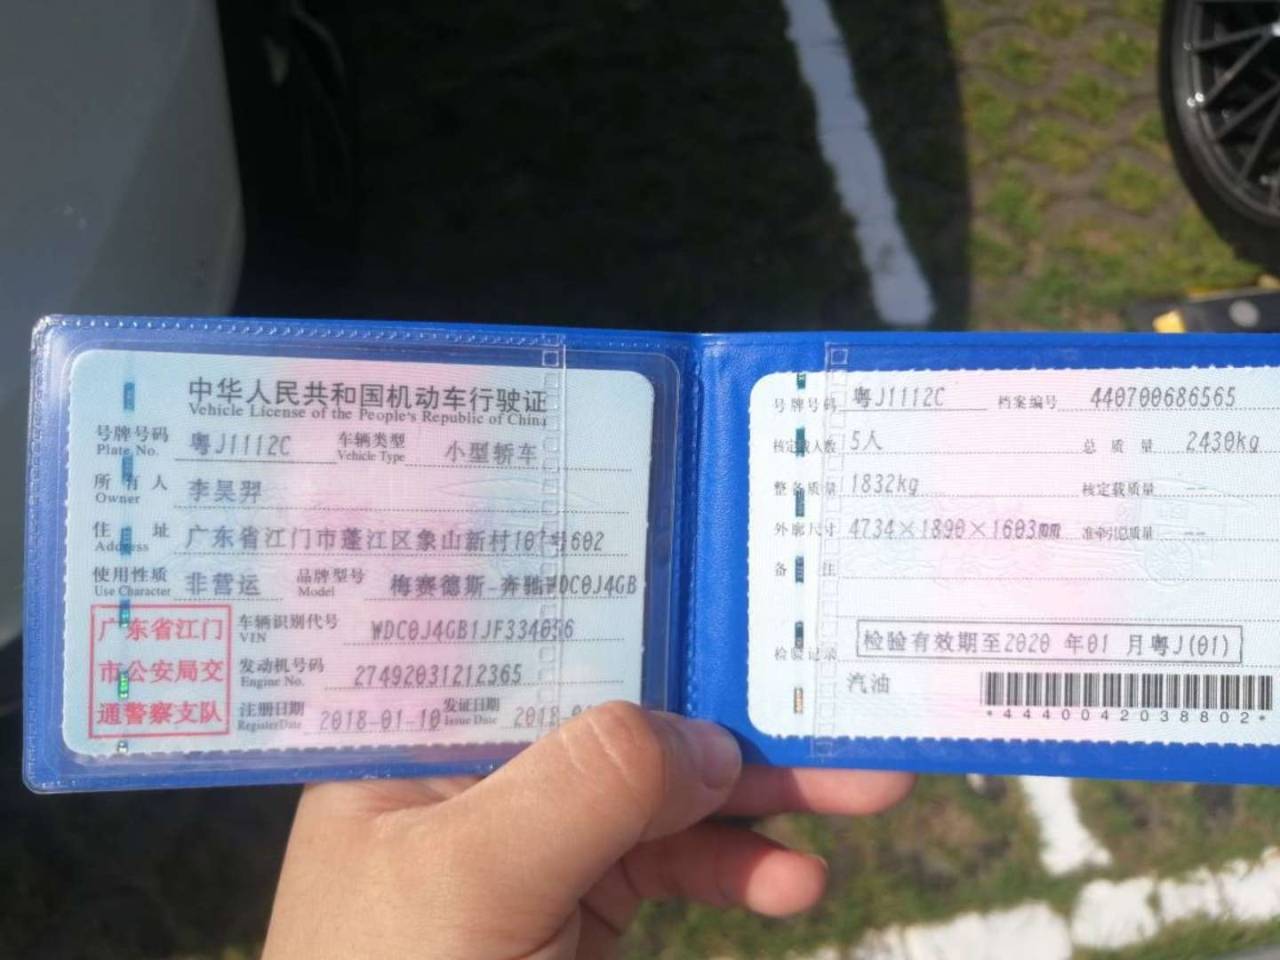 中华人民共和国机动车行驶证
Vehicle License of the People's Republic of China
号牌号码 粤J1112C 车辆类型 小型轿车
Plate No. Vehicle Type
所有人 李昊羿
Owner
住址 广东省江门市蓬江区象山新村107号602
Address
使用性质 非营运 品牌型号 梅赛德斯-奔驰WDC0J4GB
Use Character Model
广东省江门
市公安局交
通警察支队
车辆识别代号 WDC0J4GB1JF334056
VIN
发动机号码 27492031212365
Engine No.
注册日期 2018-01-10 发证日期 2018-
Register Date Issue Date
号牌号码 粤J1112C 档案编号 440700686565
核定载人数 5人 总质量 2430kg
整备质量 1832kg 核定载质量 --
外廓尺寸 4734×1890×1603mm 准牵引总质量 --
备注
检验记录 检验有效期至2020 年01 月粤J(01)
汽油
*4440042038802*